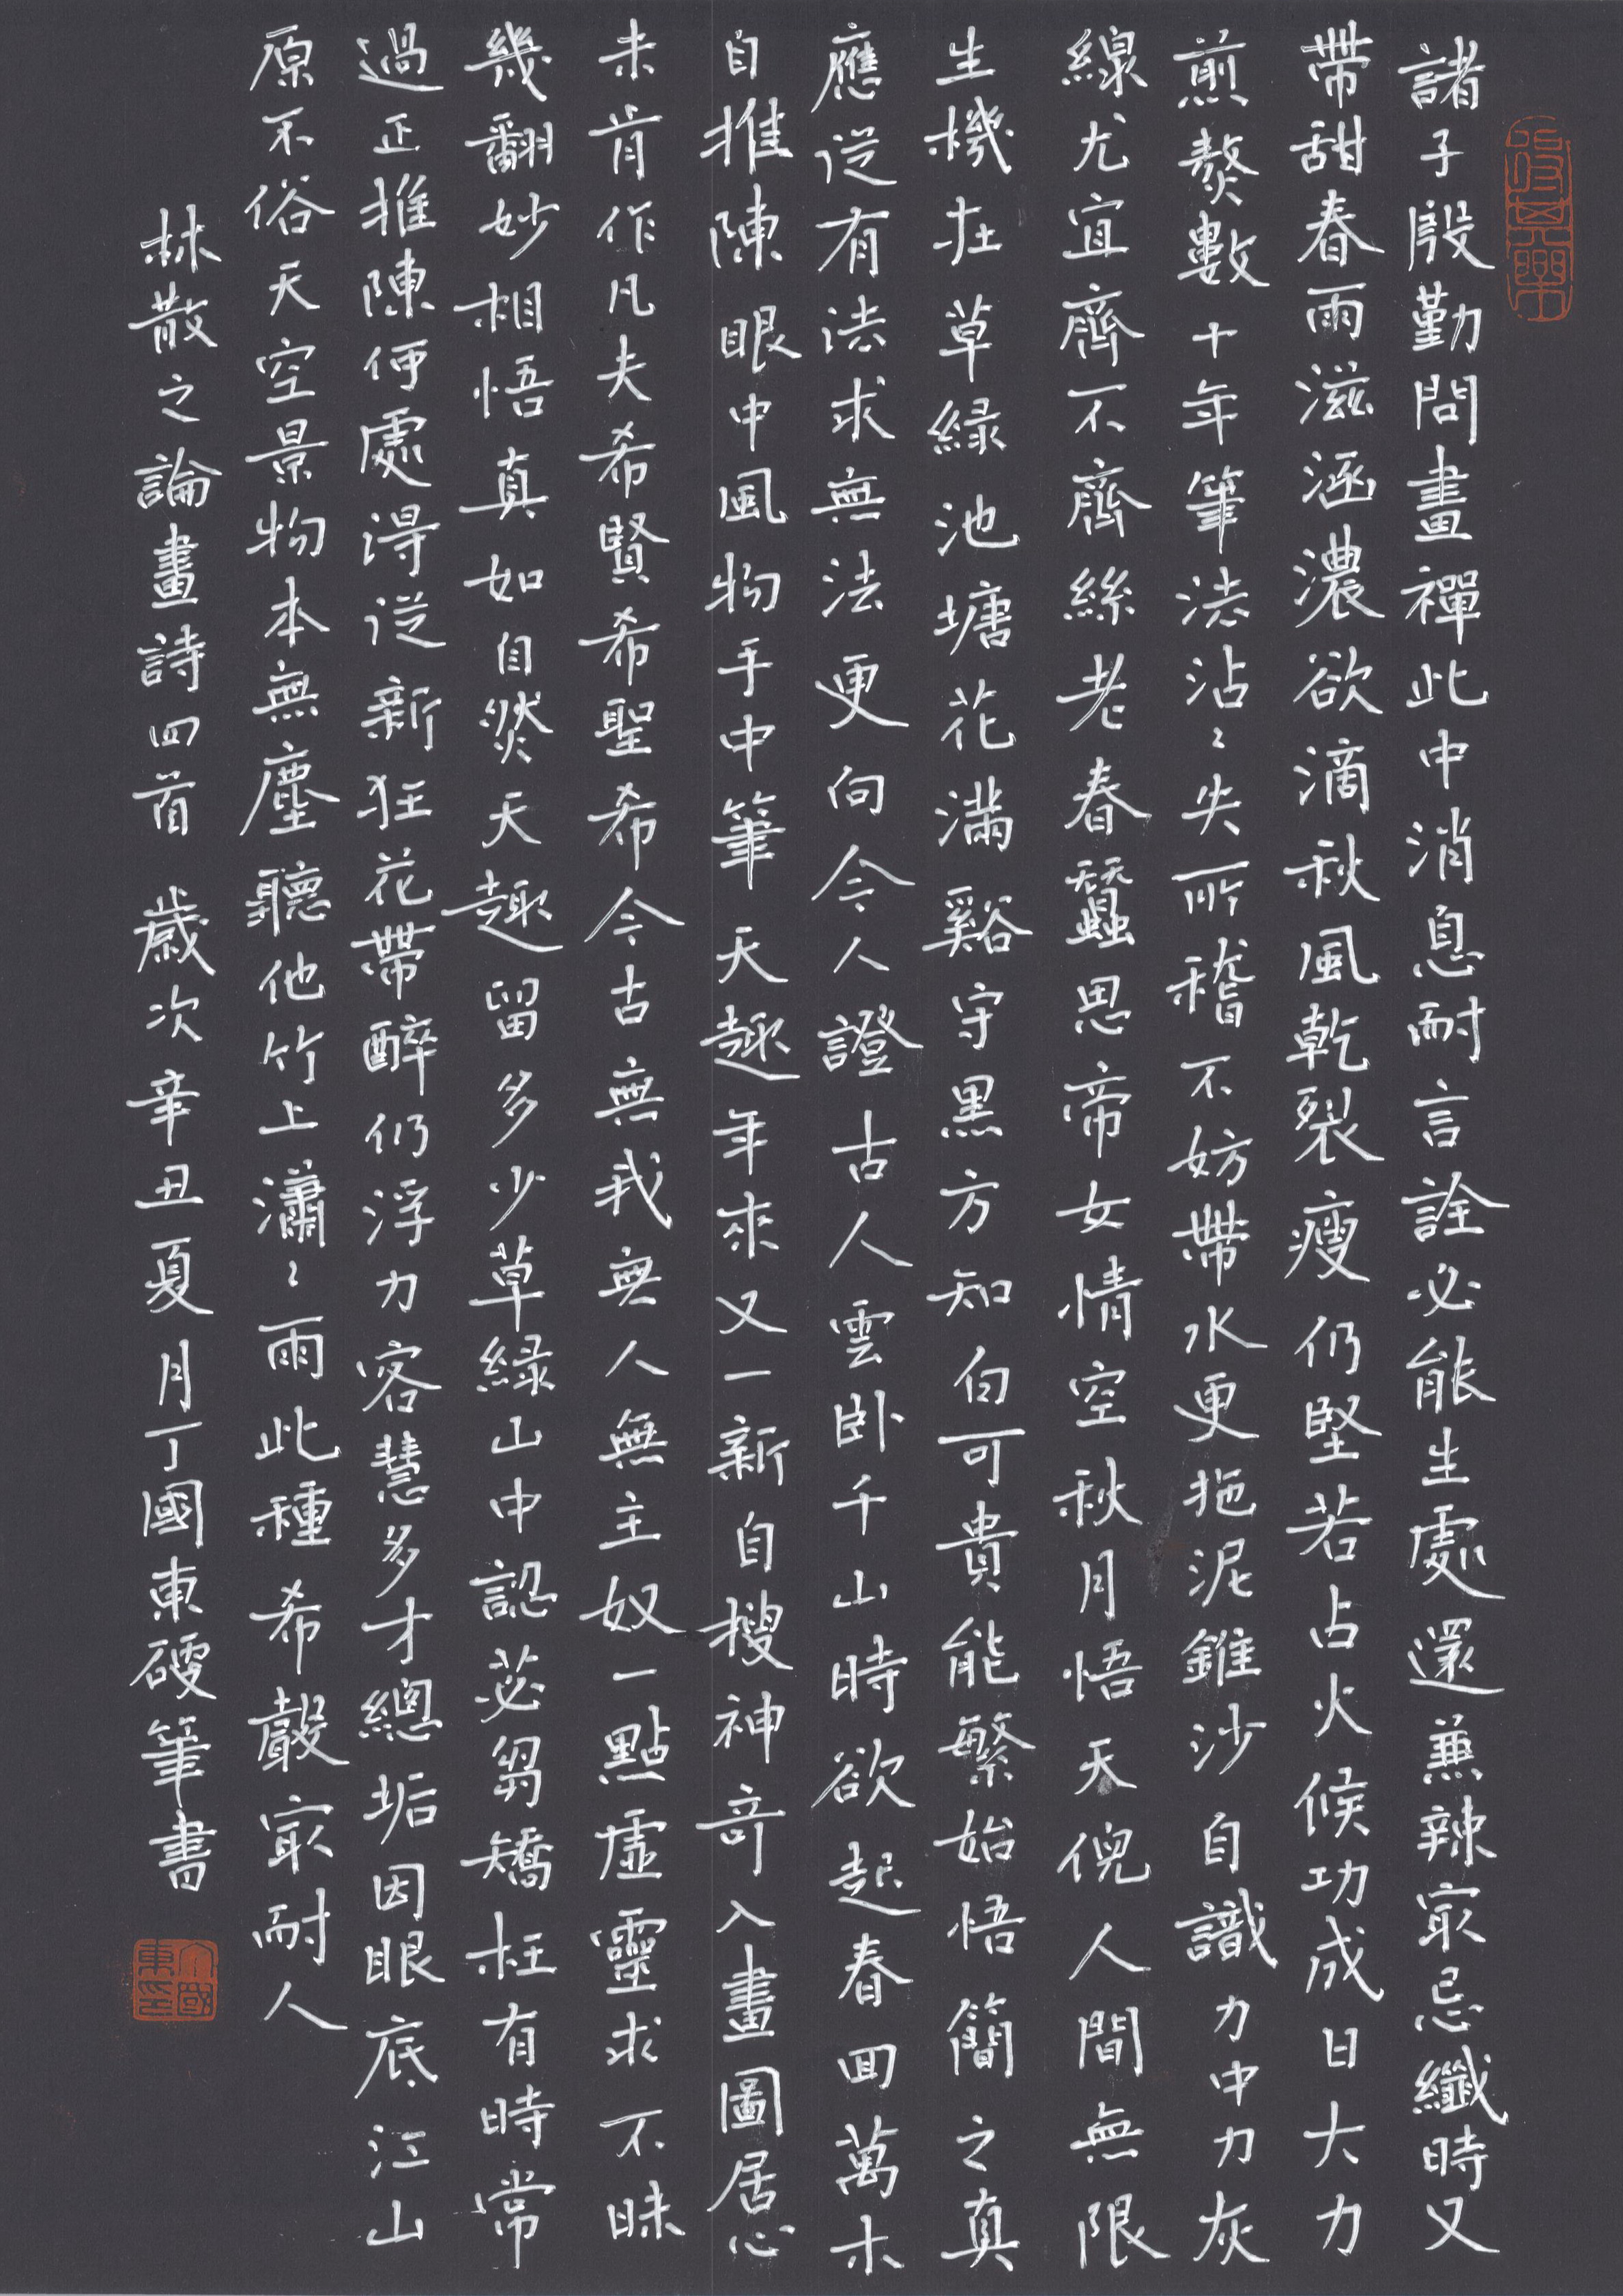 諸子殷勤問畫禪此中消息耐言詮必能生處還兼辣冣忌纖時又
帶甜春雨滋涵濃欲滴秋風乾裂瘦仍堅若占火候功成日大力
煎熬數十年筆法沾〻失所稽不妨帶水更拖泥錐沙自識力中力灰
線尤宜齊不齊絲老春蠶思帝女情空秋月悟天倪人間無限
生機在草綠池塘花滿谿守黑方知白可貴能繁始悟簡之真
應從有法求無法更向今人證古人雲卧千山時欲起春回萬木
自推陳眼中風物手中筆天趣年來又一新自搜神奇入畫圖居心
未肯作凡夫希賢希聖希今古無我無人無主奴一點虛靈求不昧
幾翻妙相悟真如自然天趣留多少草綠山中認苾芻矯枉有時常
過正推陳便處得從新狂花帶醉仍浮力客慧多才總垢因眼底江山
原不俗天空景物本無塵聽他竹上瀟〻雨此種希聲冣耐人
林散之論畫詩四首 歲次辛丑夏月丁國東硬筆書